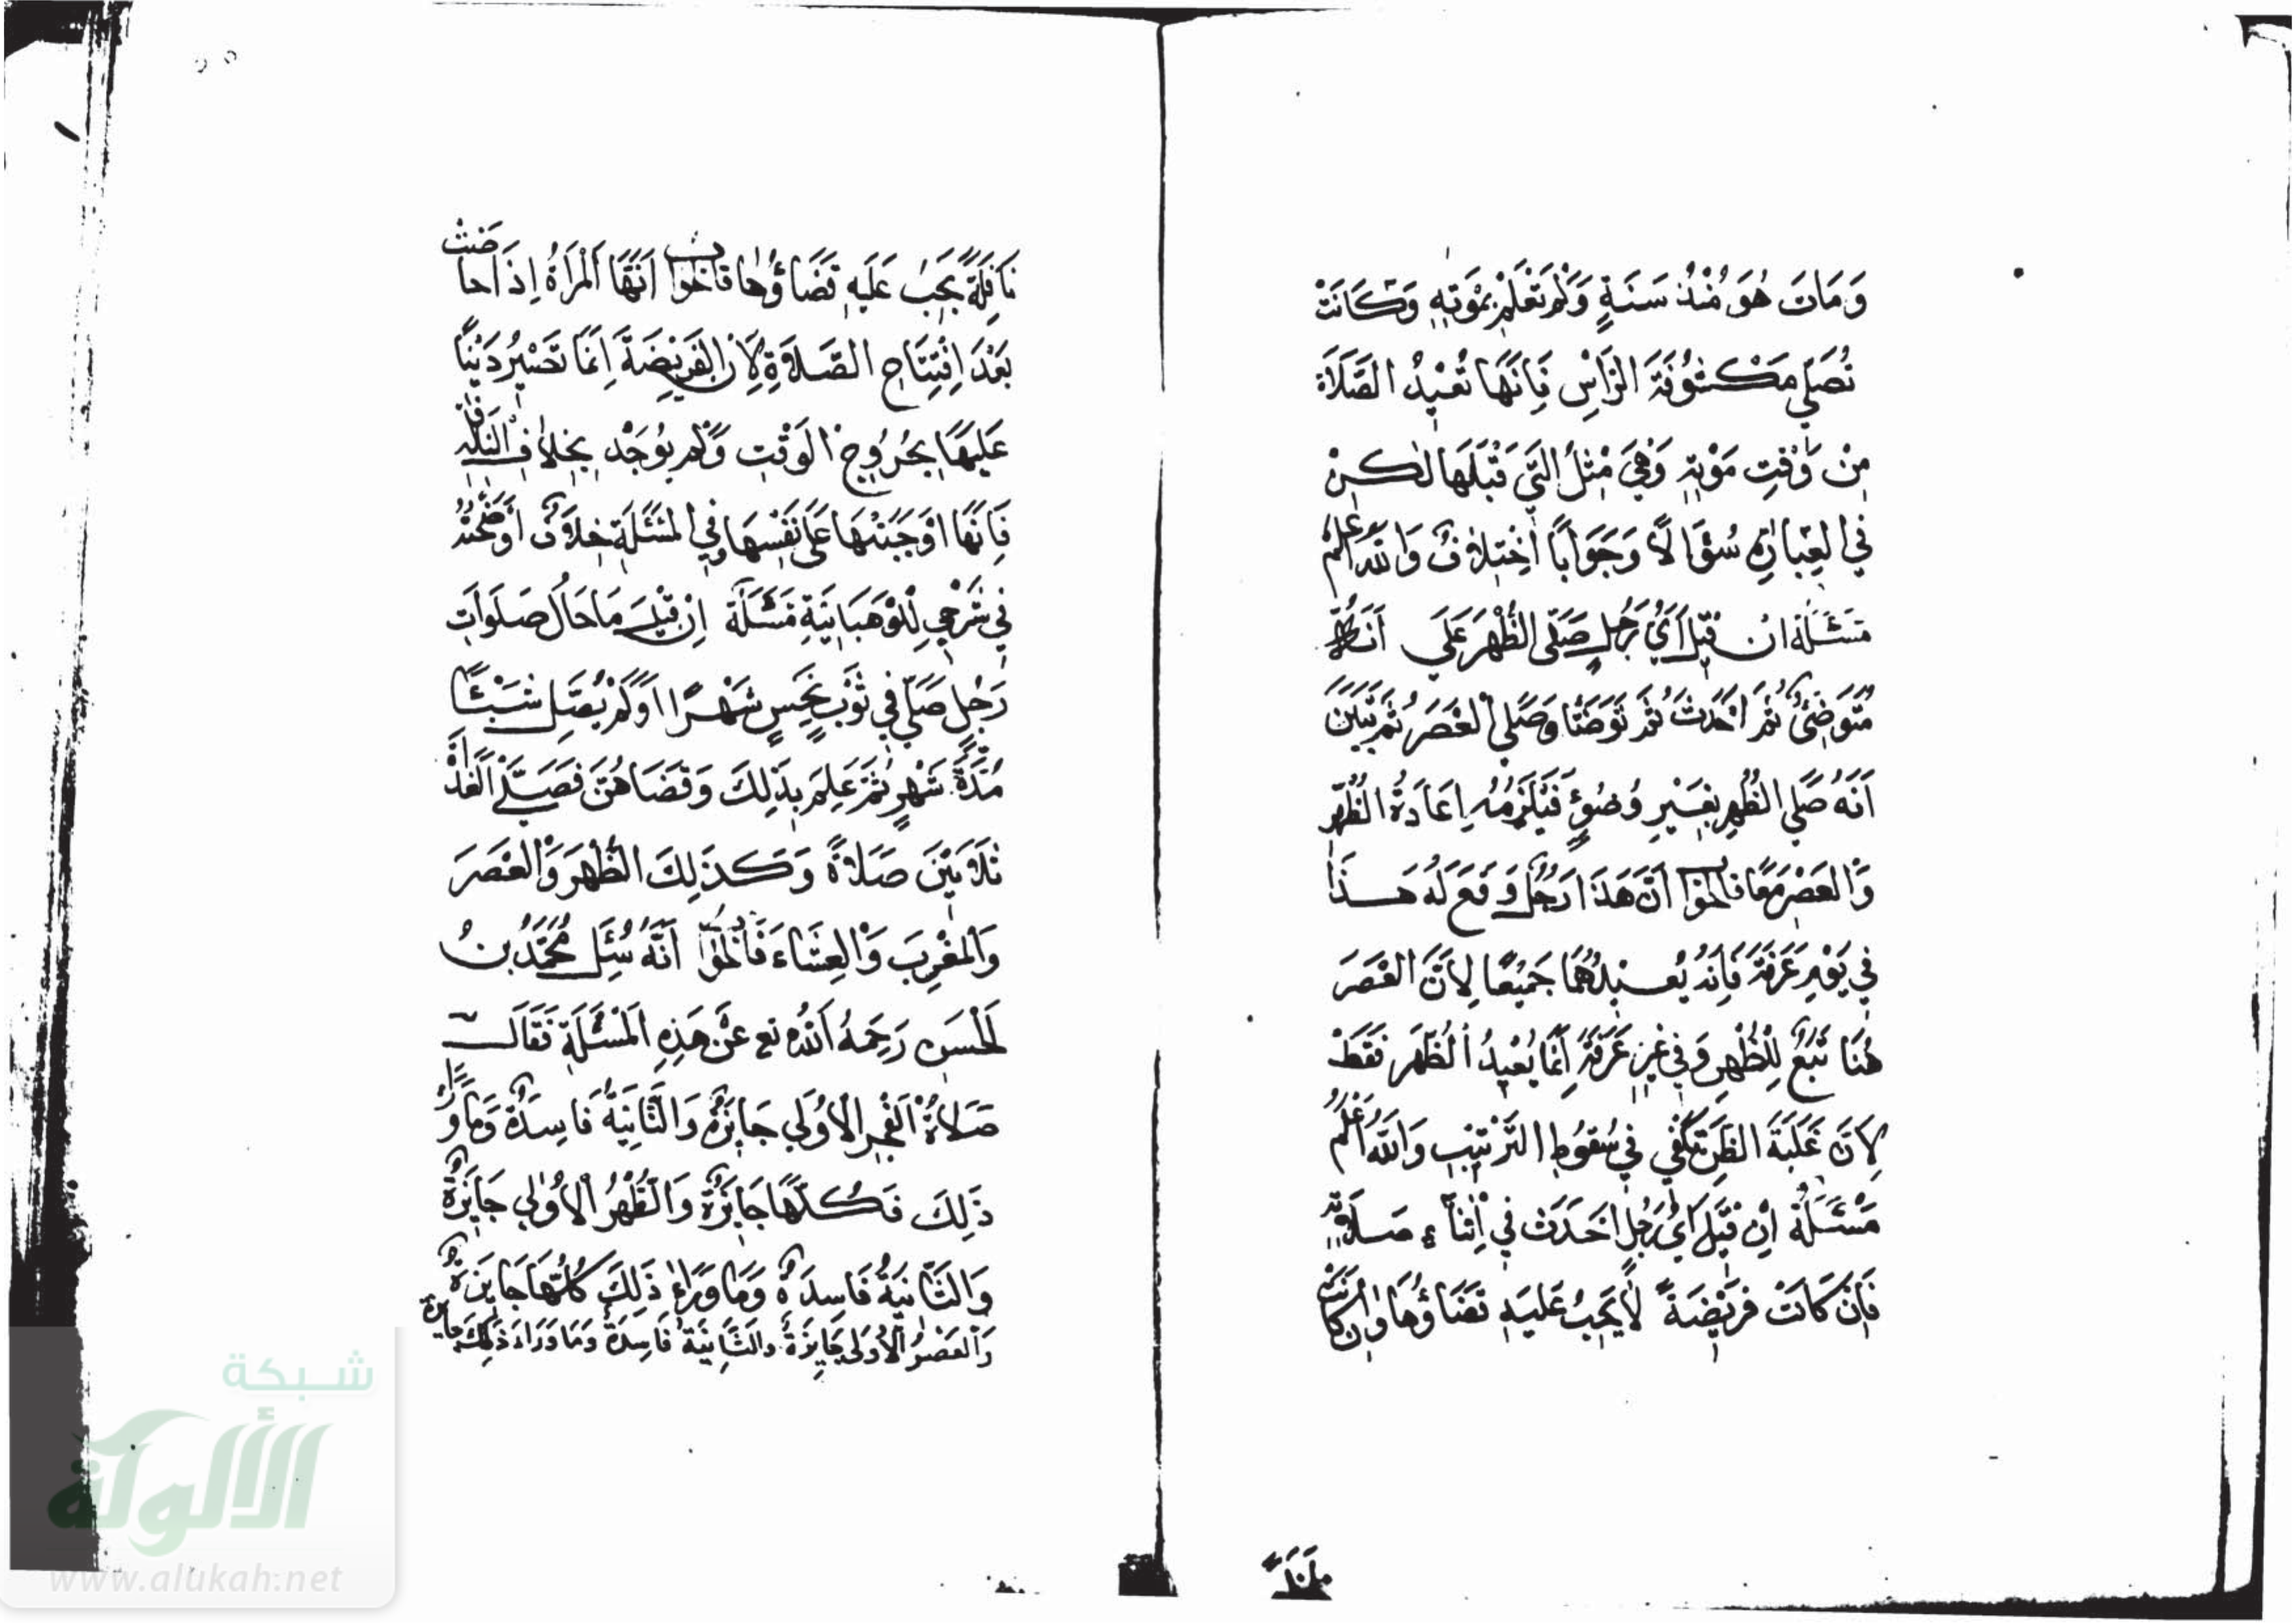 وَمَاتَ هُوَ مُنْذُ سَنَةٍ وَلَمْ تَعْلَمْ بِمَوْتِهِ وَكَانَتْ
تُصَلِّي مَكْشُوفَةَ الرَّأْسِ فَإِنَّهَا تُعِيْدُ الصَّلَاةَ
مِنْ وَقْتِ مَوْتِهِ وَهِيَ مِثْلُ الَّتِي قَبْلَهَا لَكِنْ
فِي الْعِبَارَةِ سُؤَالاً وَجَوَاباً اخْتِلَافٌ وَاللهُ أَعْلَمُ
مَسْئَلَةٌ ان قِيْلَ أَيُّ رَجُلٍ صَلَّى الظُّهْرَ عَلَى أَنَّهُ
مُتَوَضِّئٌ ثُمَّ أَحْدَثَ ثُمَّ تَوَضَّأ وَصَلَّى الْعَصْرَ ثُمَّ تَبَيَّنَ
أَنَّهُ صَلَّى الظُّهرَ بِغَيْرِ وُضُوءٍ فَيَلْزَمُهُ إِعَادَةُ الظُّهْرِ
وَالْعَصْرِ مَعًا فَالجَوَابُ أَنَّ هَذَا رَجُلٌ وَقَعَ لَهُ هَذَا
فِي يَوْمِ عَرَفَةَ فَإِنَّهُ يُعِيدُهُمَا جَمِيْعًا لِأَنَّ الْعَصْرَ
هُنَا تَبَعٌ لِلظُّهْرِ وَفِي غَيْرِ عَرَفَةَ إِنَّمَا يُعِيدُ الظُّهْرَ فَقَطْ
لِأَنَّ غَلَبَةَ الظَّنِّ تَكْفِي فِي سُقُوطِ التَّرْتِيْبِ وَاللهُ أَعْلَمُ
مَسْئَلَةٌ إِنْ قِيْلَ أَيُّ رَجُلٍ أَحْدَثَ فِي أَثْنَاءِ صَلَاتِهِ
فَإِنْ كَانَتْ فَرِيْضَةً لَا يَجِبُ عَلَيْهِ قَضَاؤُهَا وَإِنْ كَانَتْ
نَافِلَةً يَجِبُ عَلَيْهِ قَضَاؤُهَا فَالجَوَابُ أَنَّهَا الْمَرْأَةُ إِذَا حَاضَتْ
بَعْدَ افْتِتَاحِ الصَّلَاةِ لِأَنَّ الْفَرِيْضَةَ إِنَّمَا تَصِيْرُ دَيْنًا
عَلَيْهَا بِخُرُوجِ الْوَقْتِ وَلَمْ يُوجَدْ بِخِلَافِ النَّافِلَةِ
فَإِنَّهَا أَوْجَبَتْهَا عَلَى نَفْسِهَا وَفِي الْمَسْئَلَةِ خِلَافٌ أَوْضَحْتُهُ
فِي شَرْحِي لِلْوَهْبَانِيَّةِ مَسْئَلَةٌ إِنْ قِيْلَ مَا حَالُ صَلَوَاتِ
رَجُلٍ صَلَّى فِي ثَوْبٍ نَجِسٍ شَهْرًا أَوْ لَمْ يُصَلِّ شَيْئًا
مُدَّةَ شَهْرٍ ثُمَّ عَلِمَ بِذَلِكَ وَقَضَاهُنَّ فَصَلَّى الْغَدَاةَ
ثَلَاثِيْنَ صَلَاةً وَكَذَلِكَ الظُّهْرَ وَالْعَصْرَ
وَالْمَغْرِبَ وَالْعِشَاءَ فَالجَوَابُ أَنَّهُ سُئِلَ مُحَمَّدُ بْنُ
الْحَسَنِ رَحِمَهُ اللهُ تع عَنْ هَذِهِ الْمَسْئَلَةِ فَقَالَ
صَلَاةُ الْفَجْرِ الْأُوْلَى جَايِزَةٌ وَالثَّانِيَةُ فَاسِدَةٌ وَمَا وَرَاءَ
ذَلِكَ فَكُلُّهَا جَايِزَةٌ وَالظُّهْرُ الْأُوْلَى جَايِزَةٌ
وَالثَّانِيَةُ فَاسِدَةٌ وَمَا وَرَاءَ ذَلِكَ كُلُّهَا جَايِزَةٌ
وَالْعَصْرُ الْأُوْلَى جَايِزَةٌ وَالثَّانِيَةُ فَاسِدَةٌ وَمَا وَرَاءَ ذَلِكَ جَايِزَة
شبكة
الألوكة
www.alukah.net